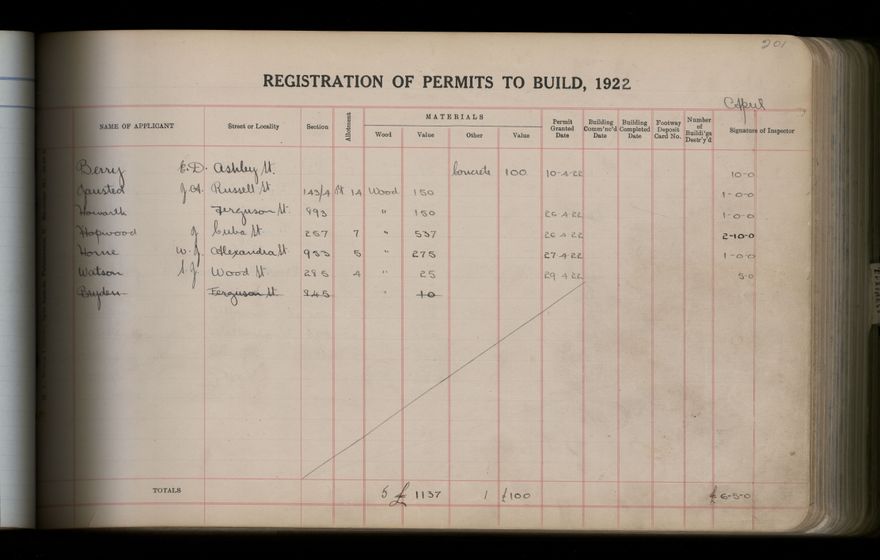 201
REGISTRATION OF PERMITS TO BUILD, 1922
April
NAME OF APPLICANT Street or Locality Section Allotment MATERIALS Wood Value Other Value Permit Granted Date Building Comm'nc'd Date Building Completed Date Footway Deposit Card No. Number of Buildi'gs Destr'y'd Signature of Inspector
Berry E.D. Ashley St. Concrete 100 10-4-22 10-0
J.A. Russell St 143/4 Pt 14 Wood 150 1-0-0
Howarth Ferguson St. 893 " 150 26-4-22 1-0-0
Hopwood J Cuba St 257 7 " 537 26-4-22 2-10-0
Horne W.J. Alexandra St 933 5 " 275 27-4-22 1-0-0
Watson S.J Wood St 285 4 " 25 29-4-22 5-0
Bryden Ferguson St 845 " 10
TOTALS 5 £ 1137 1 £100 £6-5-0